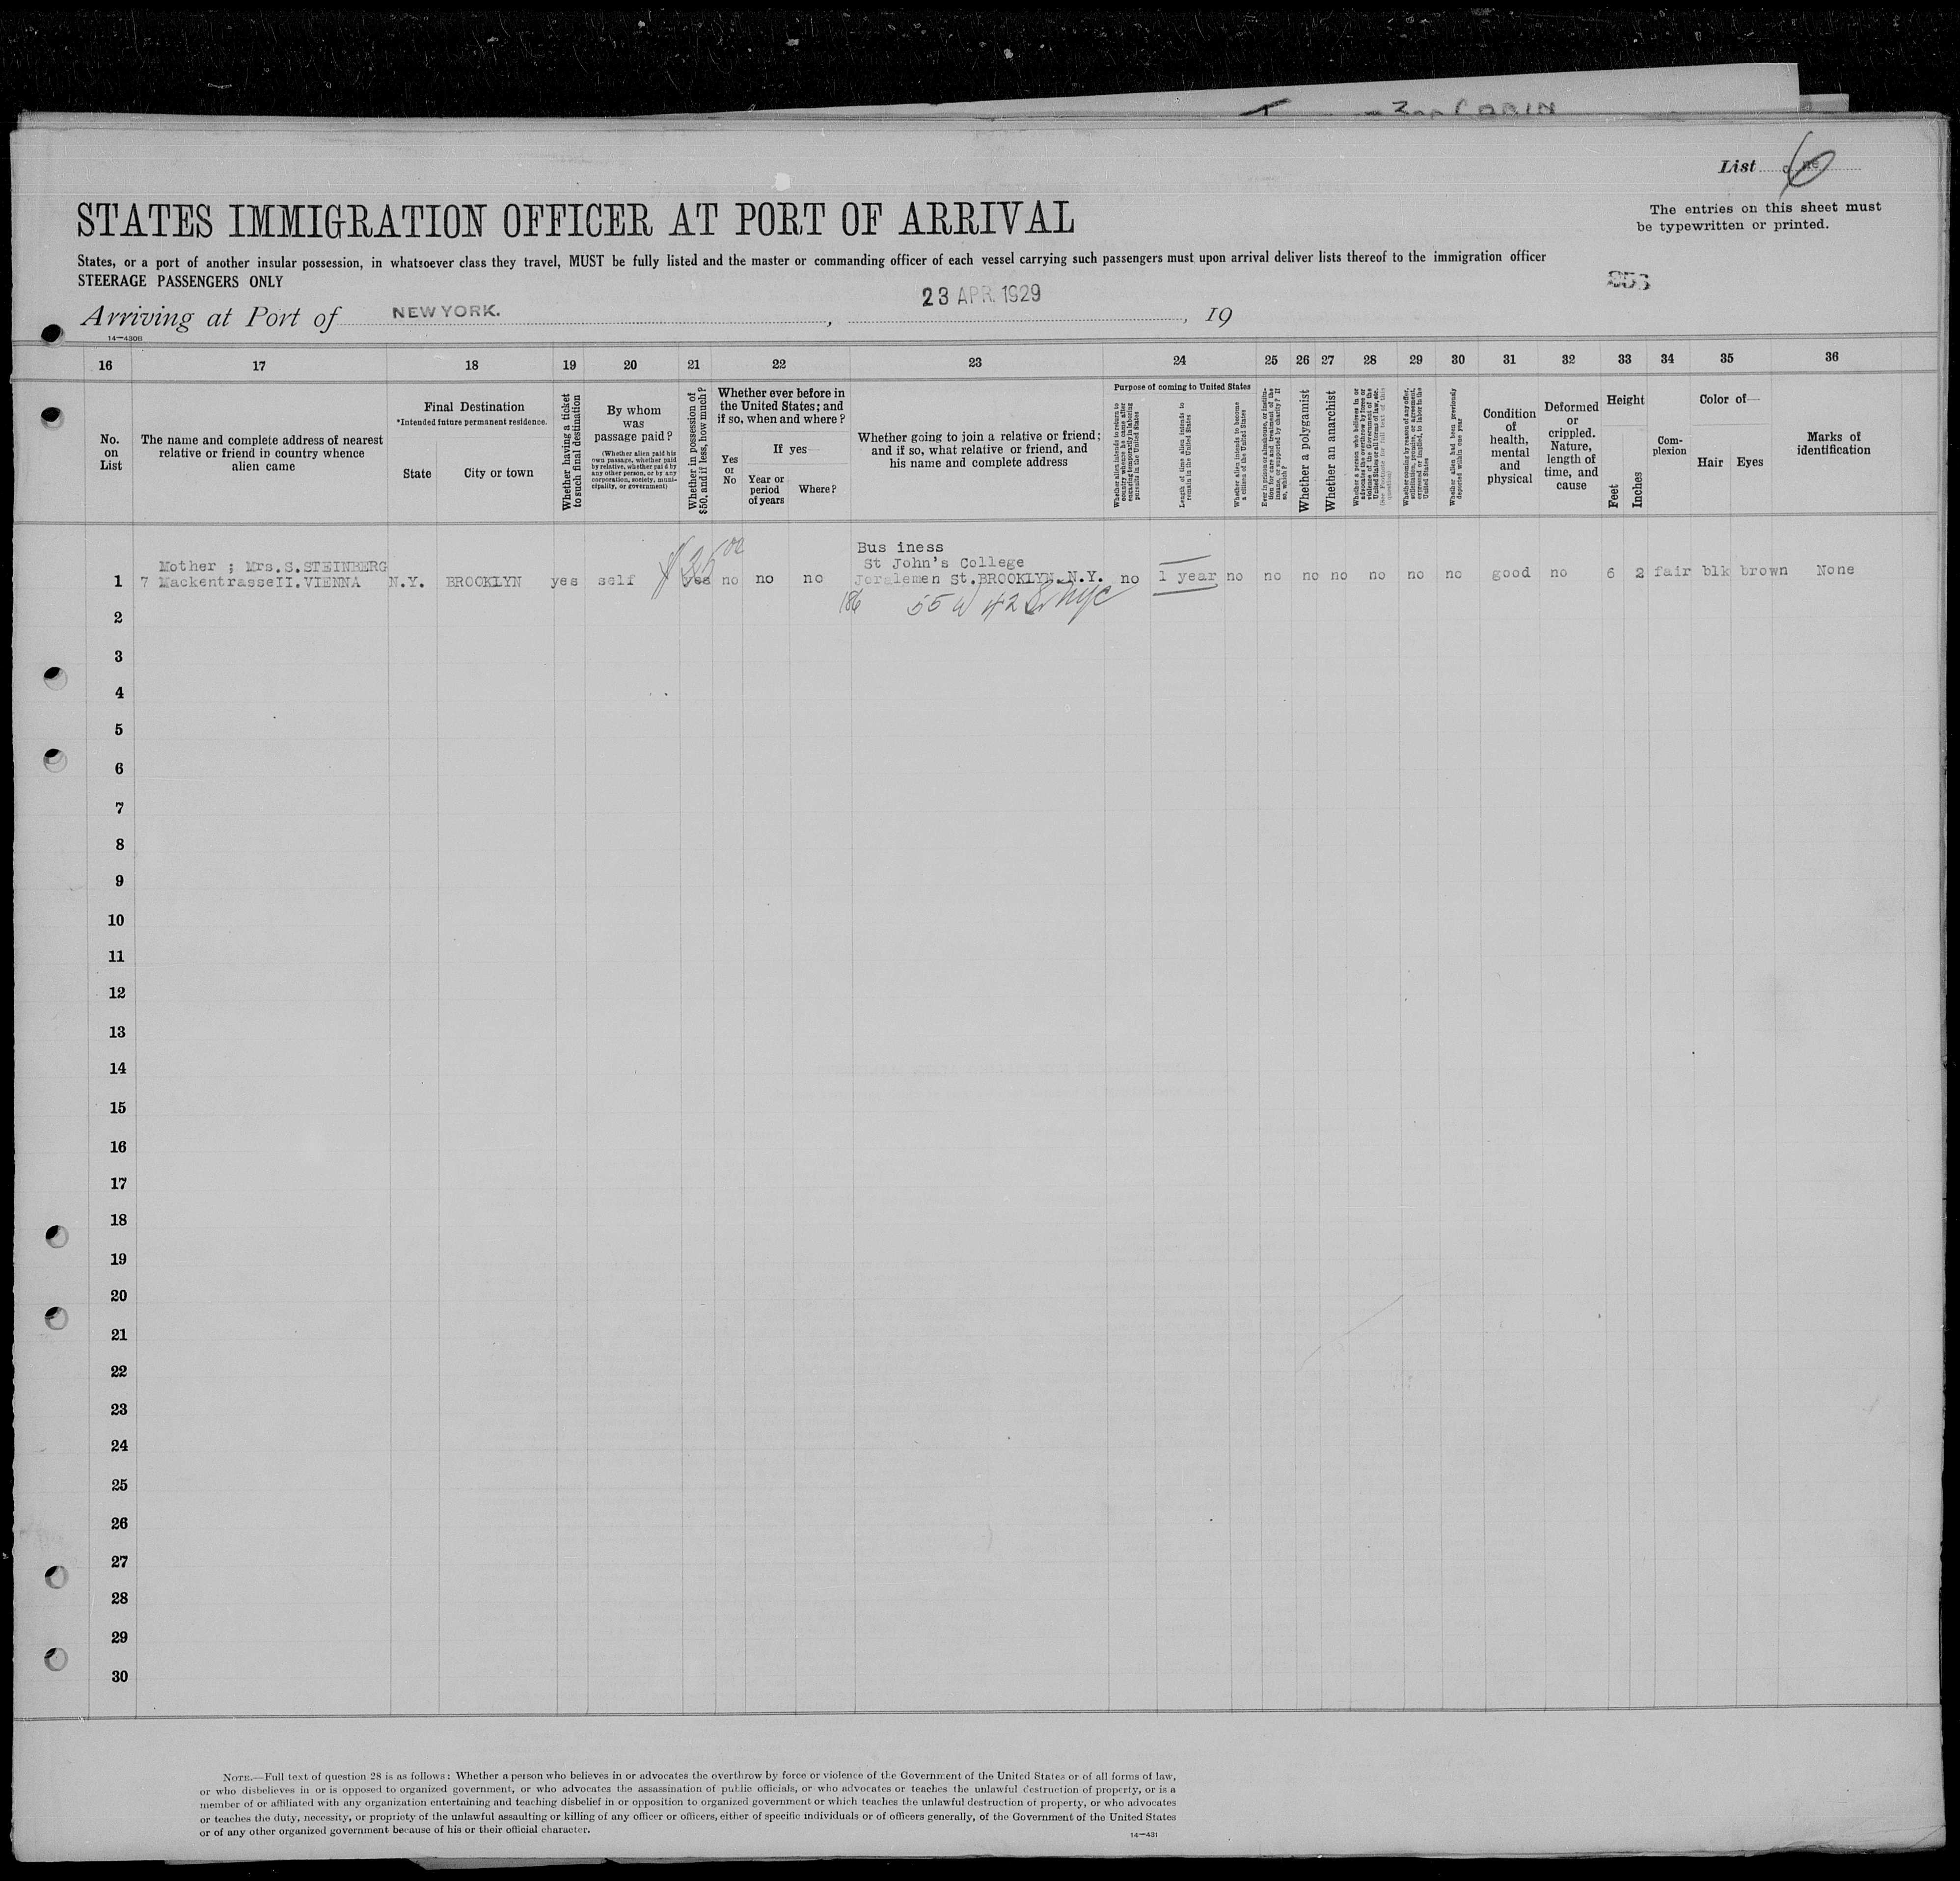 List
STATES IMMIGRATION OFFICER AT PORT OF ARRIVAL
The entries on this sheet must
be typewritten or printed.
States, or a port of another insular possession, in whatsoever class they travel, MUST be fully listed and the master or commanding officer of each vessel carrying such passengers must upon arrival deliver lists thereof to the immigration officer
STEERAGE PASSENGERS ONLY
Arriving at Port of NEW YORK. , 23 APR. 1929 , 19
14—430B
16 17 18 19 20 21 22 23 24 25 26 27 28 29 30 31 32 33 34 35 36
No.
on
List
The name and complete address of nearest
relative or friend in country whence
alien came
Final Destination
*Intended future permanent residence.
State City or town
Whether having a ticket
to such final destination
By whom
was
passage paid?
(Whether alien paid his
own passage, whether paid
by relative, whether paid by
any other person, or by any
corporation, society, muni-
cipality, or government)
Whether in possession of
$50, and if less, how much?
Whether ever before in
the United States; and
if so, when and where?
Yes
or
No
If yes—
Year or
period
of years
Where?
Whether going to join a relative or friend;
and if so, what relative or friend, and
his name and complete address
Purpose of coming to United States
Whether alien intends to return to
country whence he came after
engaging temporarily in laboring
pursuits in the United States
Length of time alien intends to
remain in the United States
Whether alien intends to become
a citizen of the United States
Ever in prison or almshouse, or institu-
tion for care and treatment of the
insane, or supported by charity? If
so, which?
Whether a polygamist
Whether an anarchist
Whether a person who believes in or
advocates the overthrow by force or
violence of the Government of the
United States or all forms of law, etc.
(See Footnote for full text of this
question)
Whether coming by reason of any offer,
solicitation, promise, or agreement,
expressed or implied, to labor in the
United States
Whether alien had been previously
deported within one year
Condition
of
health,
mental
and
physical
Deformed
or
crippled.
Nature,
length of
time, and
cause
Height
Feet
Inches
Com-
plexion
Color of—
Hair Eyes
Marks of
identification
Mother ; Mrs.S.STEINBERG
Bus iness
St John's College
1 7 MackentrasseII.VIENNA N.Y. BROOKLYN yes self yes no no no Joralemen St.BROOKLYN.N.Y. no 1 year no no no no no no no good no 6 2 fair blk brown None
186 55 W 42 St NYC
2
3
4
5
6
7
8
9
10
11
12
13
14
15
16
17
18
19
20
21
22
23
24
25
26
27
28
29
30
NOTE.—Full text of question 28 is as follows: Whether a person who believes in or advocates the overthrow by force or violence of the Government of the United States or of all forms of law,
or who disbelieves in or is opposed to organized government, or who advocates the assassination of public officials, or who advocates or teaches the unlawful destruction of property, or is a
member of or affiliated with any organization entertaining and teaching disbelief in or opposition to organized government or which teaches the unlawful destruction of property, or who advocates
or teaches the duty, necessity, or propriety of the unlawful assaulting or killing of any officer or officers, either of specific individuals or of officers generally, of the Government of the United States
or of any other organized government because of his or their official character.
14—431